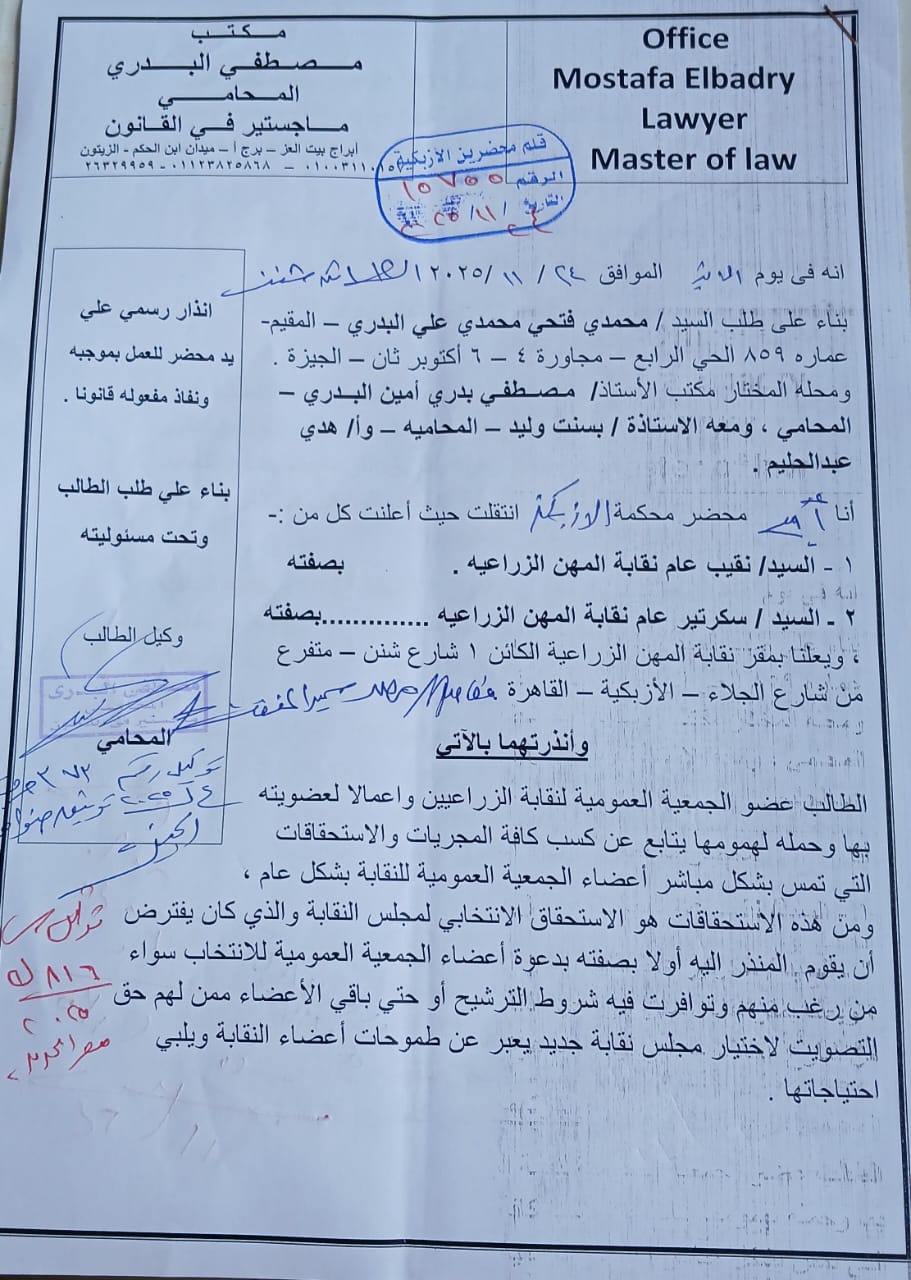 مكتب
مصطفي البدري
المحامي
ماجستير في القانون
ابراج بيت العز – برج أ – ميدان ابن الحكم – الزيتون
٠١١٢٣٨٢٥٨٦٨ – ٢٦٣٢٩٩٥٩
Office
Mostafa Elbadry
Lawyer
Master of law
قلم محضرين الأزبكية
الرقم ١٥٧٥٥
التاريخ
انه فى يوم الموافق ٢٤ / ١١ /٢٠٢٥
بناء على طلب السيد / محمدي فتحي محمدي علي البدري – المقيم-
عماره ٨٥٩ الحي الرابع – مجاورة ٤ – ٦ أكتوبر ثان – الجيزة .
ومحله المختار مكتب الأستاذ/ مصطفي بدري أمين البدري –
المحامي ، ومعه الاستاذة / بسنت وليد – المحاميه – وأ/ هدي
عبدالحليم .
أنا محضر محكمة الازبكية انتقلت حيث أعلنت كل من :-
١ - السيد/ نقيب عام نقابة المهن الزراعيه . بصفته
٢ - السيد / سكرتير عام نقابة المهن الزراعيه ..............بصفته
، ويعلنا بمقر نقابة المهن الزراعية الكائن ١ شارع شنن – متفرع
من شارع الجلاء – الأزبكية – القاهرة
وأنذرتهما بالآتي
الطالب عضو الجمعية العمومية لنقابة الزراعيين واعمالا لعضويته
بها وحمله لهمومها يتابع عن كسب كافة المجريات والاستحقاقات
التي تمس بشكل مباشر أعضاء الجمعية العمومية للنقابة بشكل عام ،
ومن هذه الاستحقاقات هو الاستحقاق الانتخابي لمجلس النقابة والذي كان يفترض
أن يقوم المنذر اليه أولا بصفته بدعوة أعضاء الجمعية العمومية للانتخاب سواء
من رغب منهم وتوافرت فيه شروط الترشيح أو حتي باقي الأعضاء ممن لهم حق
التصويت لاختيار مجلس نقابة جديد يعبر عن طموحات أعضاء النقابة ويلبي
احتياجاتها .
انذار رسمي علي
يد محضر للعمل بموجبه
ونفاذ مفعوله قانونا .
بناء علي طلب الطالب
وتحت مسئوليته
وكيل الطالب
المحامي
توكيل رقم
٨١٦